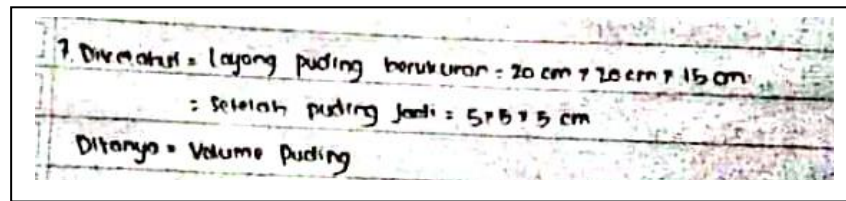 7. Diketahui = loyang puding berukuran = 20 cm x 20 cm x 15 cm.
= Setelah puding jadi = 5 x 5 x 5 cm
Ditanya = Volume Puding